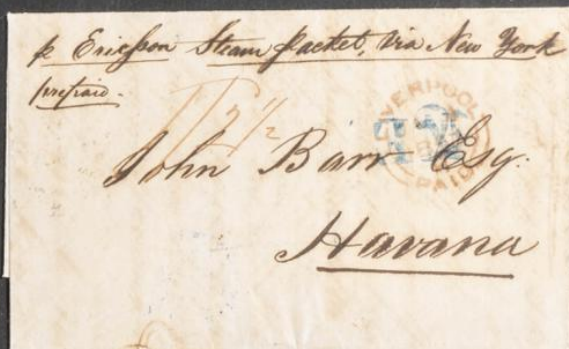 p Ericsson Steam Packet, Via New York
prepaid.
1/2½
LIVERPOOL
PAID
John Barr Esq.
Havana